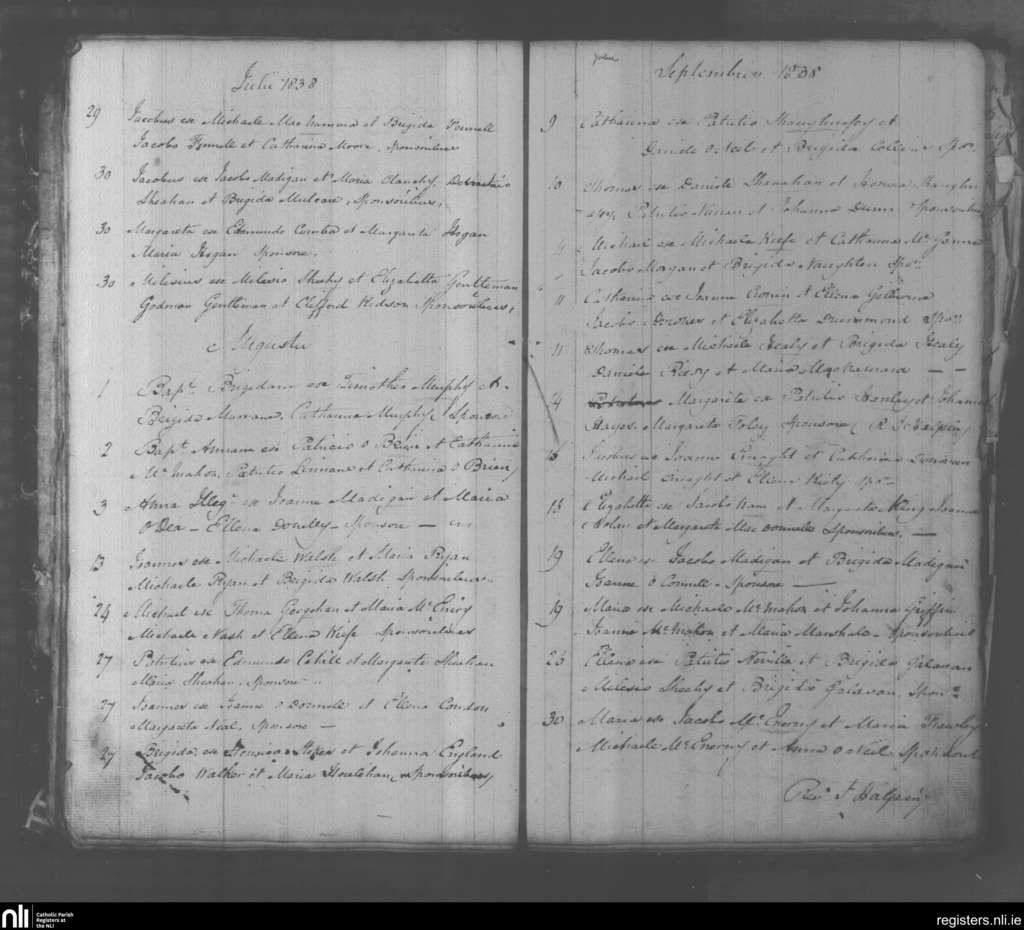 Julii 1838
29 Jacobus ex Michaele Mac Namara et Brigida Fennell
Jacobo Fennell et Catharina Moore, Sponsoribus
30 Jacobus ex Jacobo Madigan et Maria Clanchy,
Sheahan et Brigida Mulcare, Sponsoribus,
30 Margareta ex Edmundo Comba et Margarita Hogan
Maria Hogan Sponsore,
30 Milesius ex Milesio Sheehy et Elizabetta Gentleman
Godman Gentleman et Clifford Hudson Sponsoribus,
Augusti
1 Bapt. Brigidam ex Timotheo Murphy et
Brigida Murnane, Catharina Murphy Sponsore
2 Bapt. Annam ex Patricio O Brien et Catharina
Mc Mahon, Patritio Linnane et Catharina O Brien
3 Anna Illegt ex Joanne Madigan et Maria
O Dea - Ellena Donelly - Sponsore -
13 Joannes ex Michaele Welsh et Maria Ryan
Michaele Ryan et Brigida Welsh Sponsoribus
24 Michael ex Thoma Geoghan et Maria Mc Eniry
Michaele Nash et Ellena Keefe Sponsoribus
27 Patritius ex Edmundo Cahill et Margarita Sheahan
Maria Sheahan, Sponsore
27 Joannes ex Joanne O Donnele et Ellena Condon
Margareta Neal, Sponsore -
27 Brigida ex Stokes et Johanna England
Jacobo Walker et Maria Houlehan, Sponsoribus
Septembris 1838
9 Catharina ex Patritio Shaughnessy et
Daniele O Neil et Brigida Collins Spor.
10 Thomas ex Daniele Shanahan et Honora Shaughn
-essy, Patritio Nunan et Johanna Dunn Sponsoribus
Michael ex Michaele Keefe et Catharina Mc
Jacobo Morgan et Brigida Naughton Spor.
11 Catharina ex Joanne Cronin et Ellena
Jacobo et Elizabetta Drummond Spor.
11 Thomas ex Michaele Healy et Brigida Healy
Daniele et Maria Macnamara - -
14 Margarita ex Patritio Hanley et Johanna
Hayes, Margareta Foley Sponsore
16 ex Joanne Enaght et Catharina Donavan
Michael Enaght et Ellena Kirby Spor
13 Elizabetta ex Jacobo et Margareta King Joanne
Nolan et Margareta Mac Donnele Sponsoribus. -
19 Ellena ex Jacobo Madigan et Brigida Madigan
Joanne O Connell - Sponsore -
19 Maria ex Michaele Mc Mahon et Johanna Griffin
Joanne Mc Mahon et Maria Marshale - Sponsoribus
23 Ellena ex Patritio Neville et Brigida Galavan
Milesio Sheehy et Brigida Galavan, Spor.
30 Maria ex Jacobo Mc Enerny et Maria Frawley
Michaele Mc Enerny et Anna O Neil Sponsore
Revd. J Halpin
nli
Catholic Parish
Registers at
the NLI
registers.nli.ie